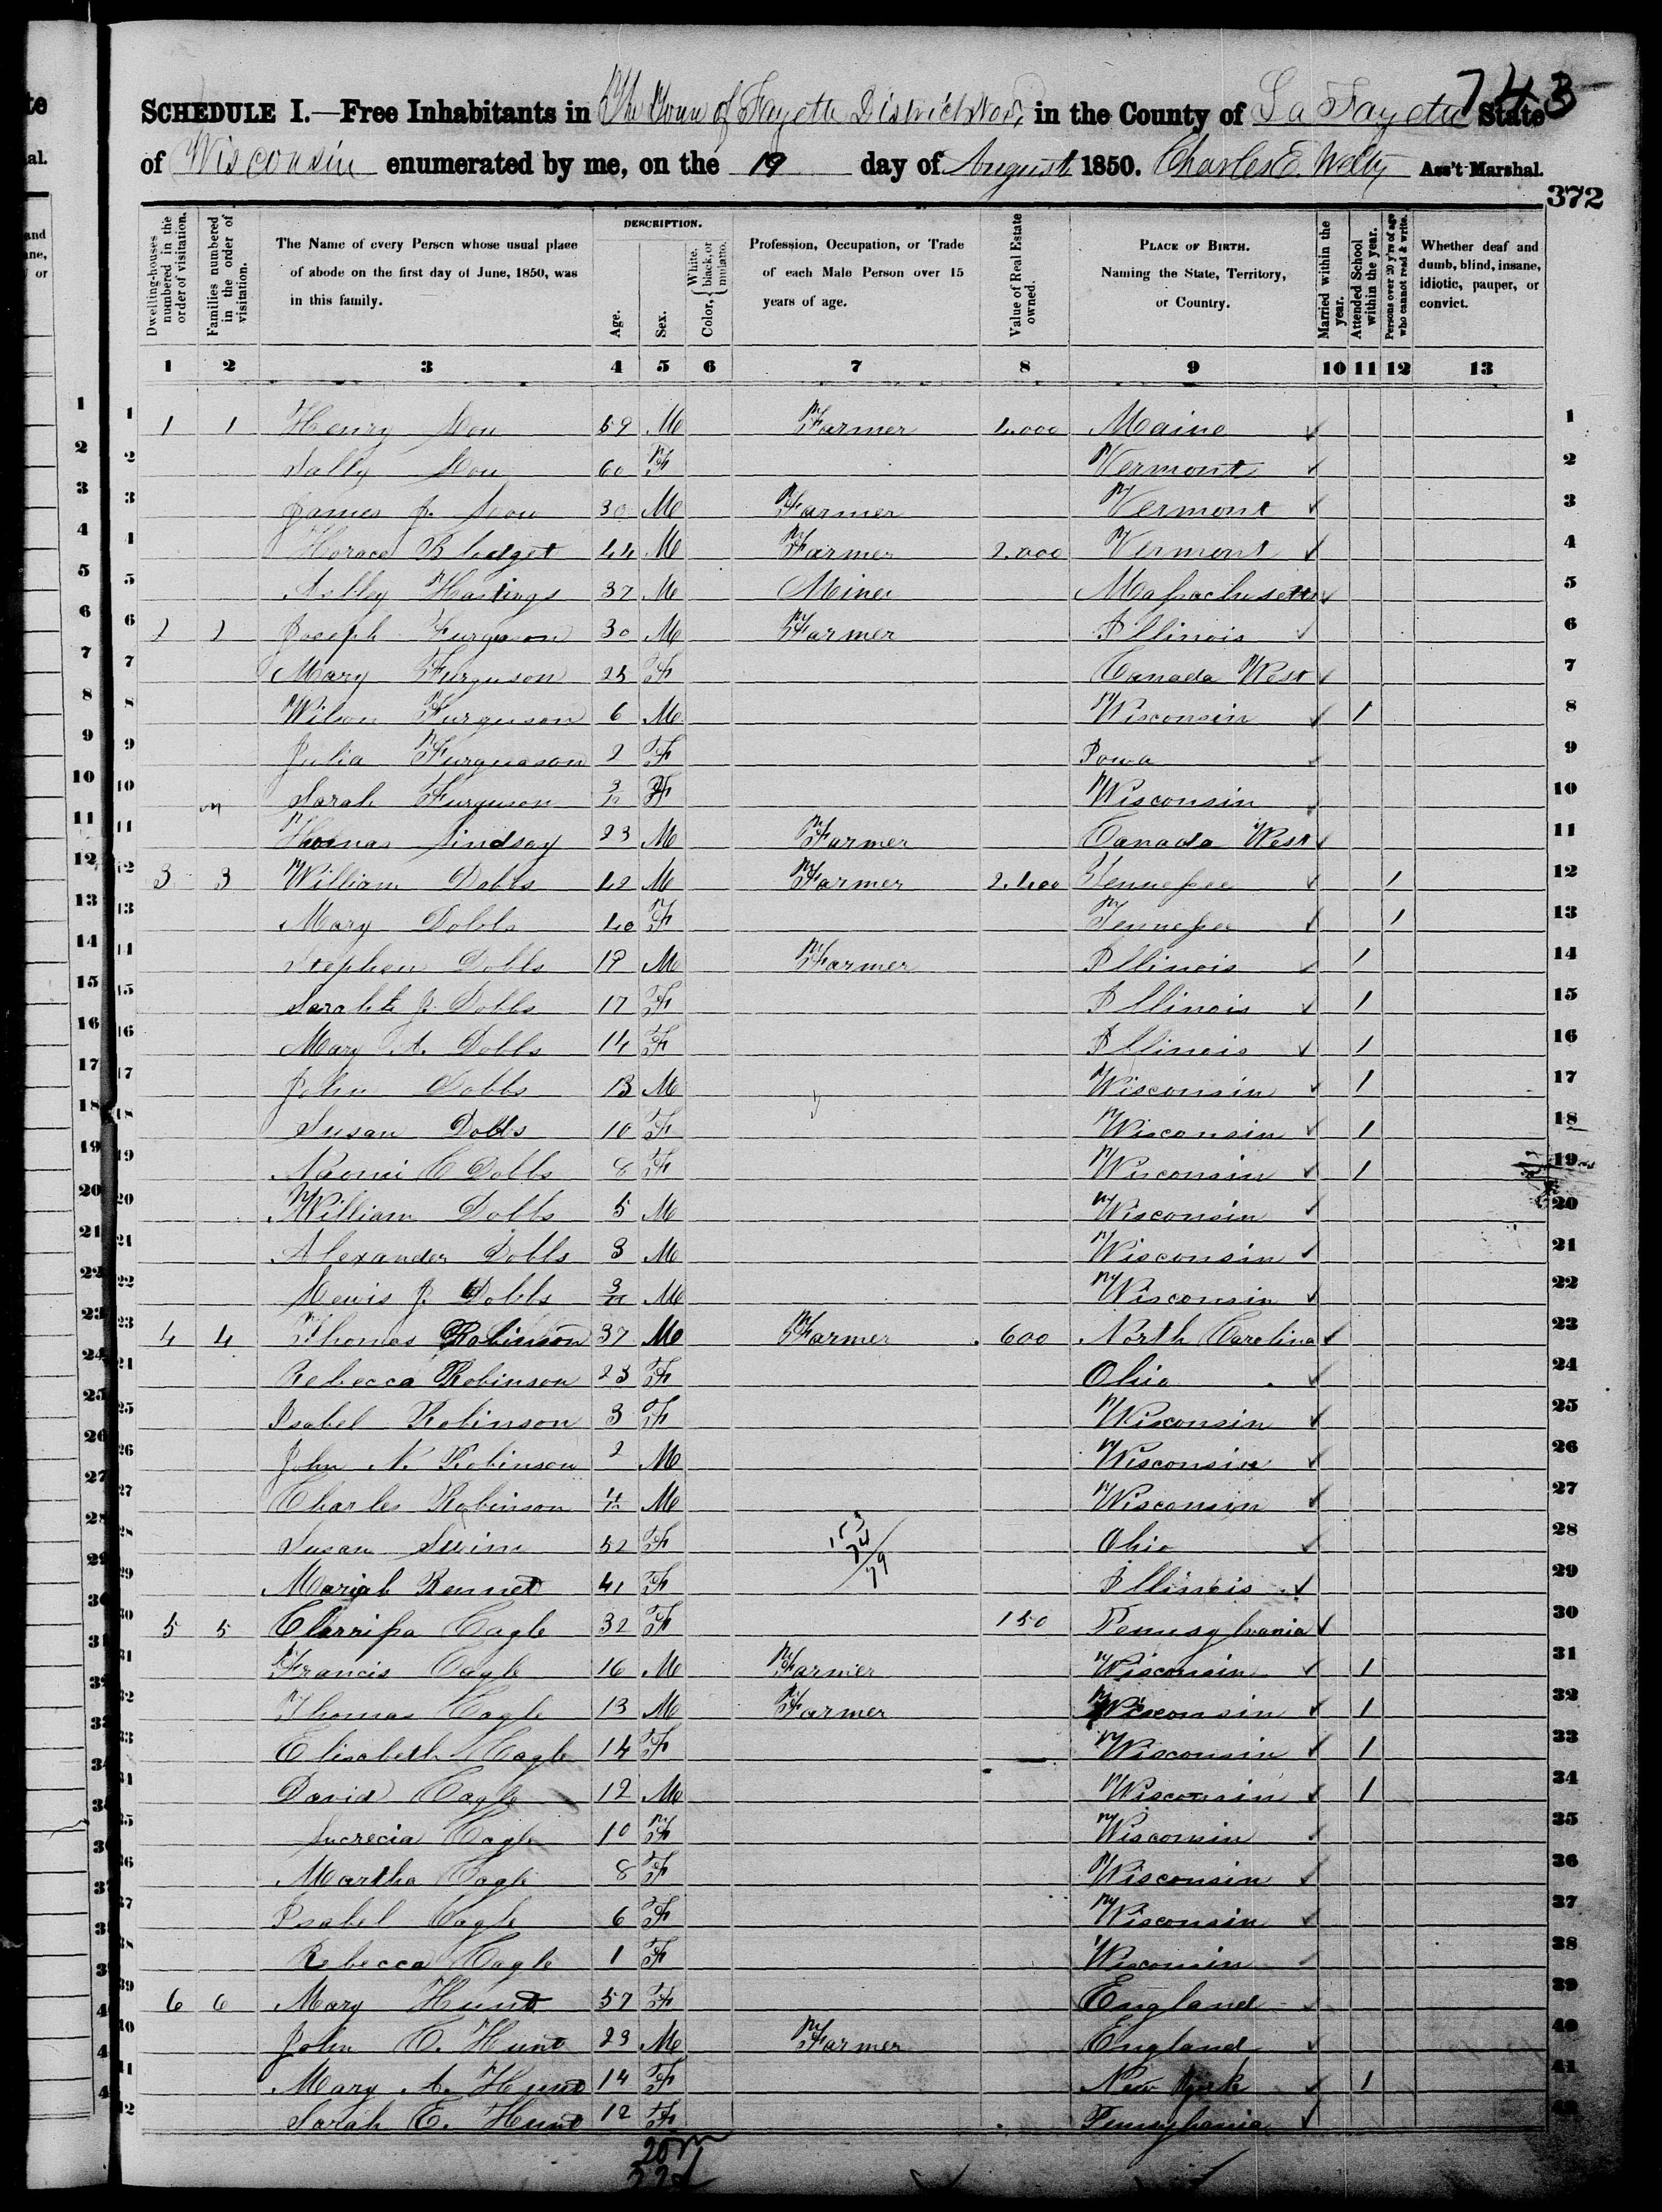 743
SCHEDULE I.—Free Inhabitants in The Town of Fayette District No 1, in the County of La Fayette State
of Wisconsin enumerated by me, on the 19 day of August 1850. Charles E. Welty Ass't Marshal.
372
Dwelling-houses numbered in the order of visitation.
Families numbered in the order of visitation.
The Name of every Person whose usual place of abode on the first day of June, 1850, was in this family.
DESCRIPTION.
Age.
Sex.
Color, White, black, or mulatto.
Profession, Occupation, or Trade of each Male Person over 15 years of age.
Value of Real Estate owned.
PLACE OF BIRTH. Naming the State, Territory, or Country.
Married within the year.
Attended School within the year.
Persons over 20 y'rs of age who cannot read & write.
Whether deaf and dumb, blind, insane, idiotic, pauper, or convict.
1 2 3 4 5 6 7 8 9 10 11 12 13
1 1 1 Henry 59 M Farmer 4.000 Maine 1
2 Sally 60 F Vermont 2
3 James J. 30 M Farmer Vermont 3
4 Horace Blodget 44 M Farmer 2.000 Vermont 4
5 Hastings 37 M Miner Massachusetts 5
6 2 2 Joseph Furguson 30 M Farmer Illinois 6
7 Mary Furguson 25 F Canada West 7
8 Wilson Furguson 6 M Wisconsin 1 8
9 Julia Furgusson 2 F Iowa 9
10 Sarah Furguson 3/12 F Wisconsin 10
11 Thomas Lindsay 23 M Farmer Canada West 11
12 3 3 William Dobbs 42 M Farmer 2.400 Tennessee 1 12
13 Mary Dobbs 40 F Tennessee 1 13
14 Stephen Dobbs 19 M Farmer Illinois 1 14
15 Sarah J. Dobbs 17 F Illinois 1 15
16 Mary A. Dobbs 14 F Illinois 1 16
17 John Dobbs 13 M Wisconsin 1 17
18 Susan Dobbs 10 F Wisconsin 1 18
19 Naomi C Dobbs 8 F Wisconsin 1 19
20 William Dobbs 5 M Wisconsin 20
21 Alexander Dobbs 3 M Wisconsin 21
22 Lewis J. Dobbs M Wisconsin 22
23 4 4 Thomas Robinson 37 M Farmer 600 North Carolina 23
24 Rebecca Robinson 23 F Ohio 24
25 Isabel Robinson 3 F Wisconsin 25
26 John N. Robinson 2 M Wisconsin 26
27 Charles Robinson 4/12 M Wisconsin 27
28 Susan Swim 52 F Ohio 28
29 Mariah Bennet 41 F Illinois 29
30 5 5 Clarrissa Cagle 32 F 150 Pennsylvania 30
31 Francis Cagle 16 M Farmer Wisconsin 1 31
32 Thomas Cagle 13 M Farmer Wisconsin 1 32
33 Elisabeth Cagle 14 F Wisconsin 1 33
34 David Cagle 12 M Wisconsin 1 34
35 Lucrecia Cagle 10 F Wisconsin 35
36 Martha Cagle 8 F Wisconsin 36
37 Isabel Cagle 6 F Wisconsin 37
38 Rebecca Cagle 1 F Wisconsin 38
39 6 6 Mary Hunt 57 F England 39
40 John C. Hunt 23 M Farmer England 40
41 Mary A. Hunt 14 F New York 1 41
42 Sarah E. Hunt 12 F Pennsylvania 42
20 m
22 f